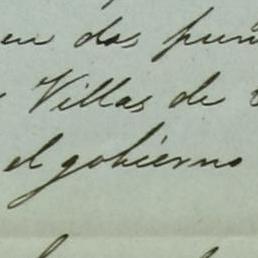 en dos pun
Villas de
el gobierno